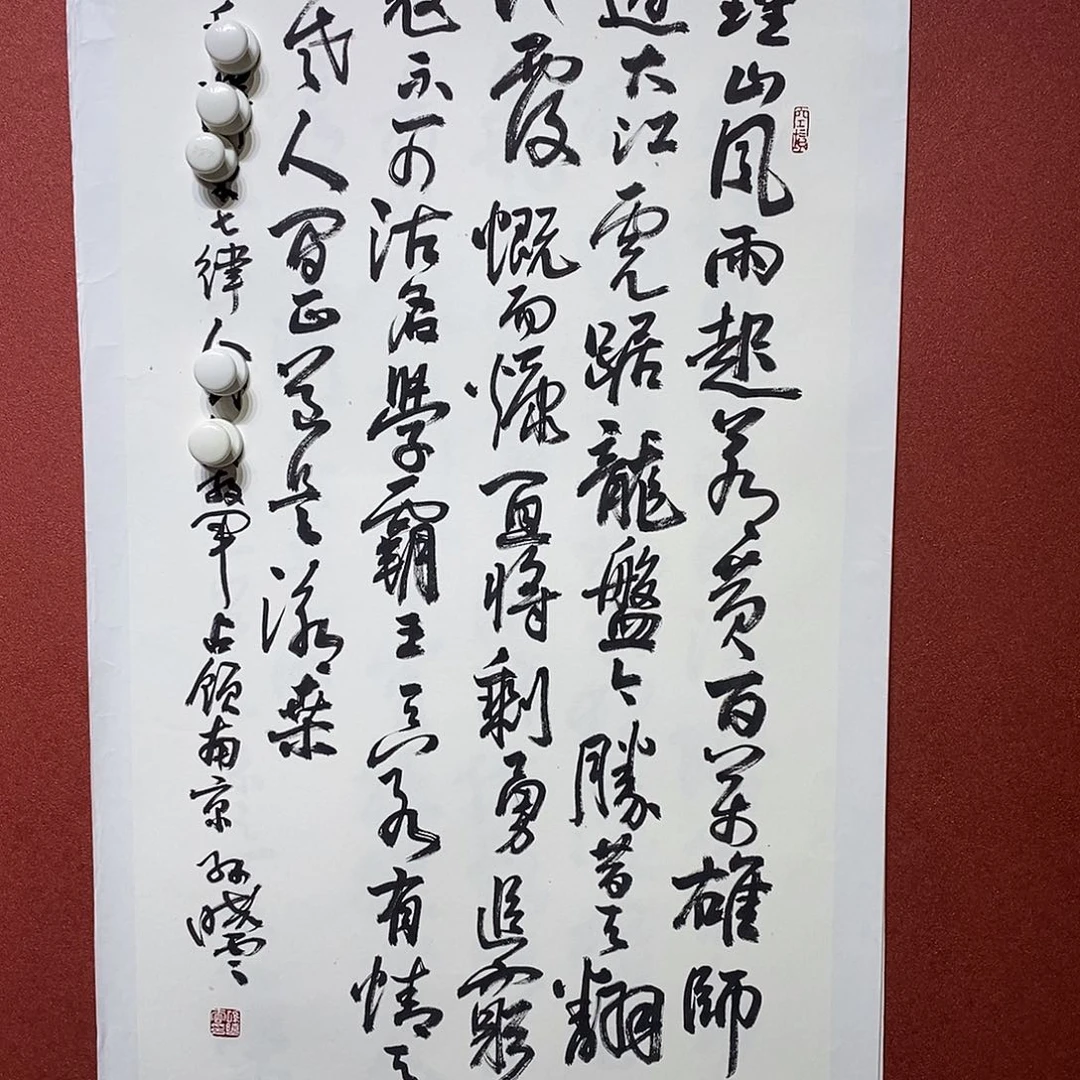 鍾山風雨起蒼黃百萬雄師
過大江虎踞龍盤今勝昔天翻
覆慨而慷宜將剩勇追窮
寇不可沽名學霸王天若有情天
人間正道是滄桑
七律人放軍占領南京 孫曉雲